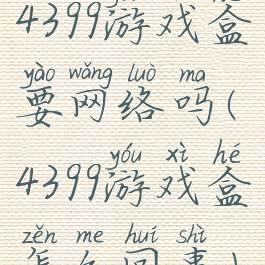 4399游戏盒
yào wǎng luò ma
要网络吗(
yóu xì hé
4399游戏盒
zěn me huí shì
怎么回事)